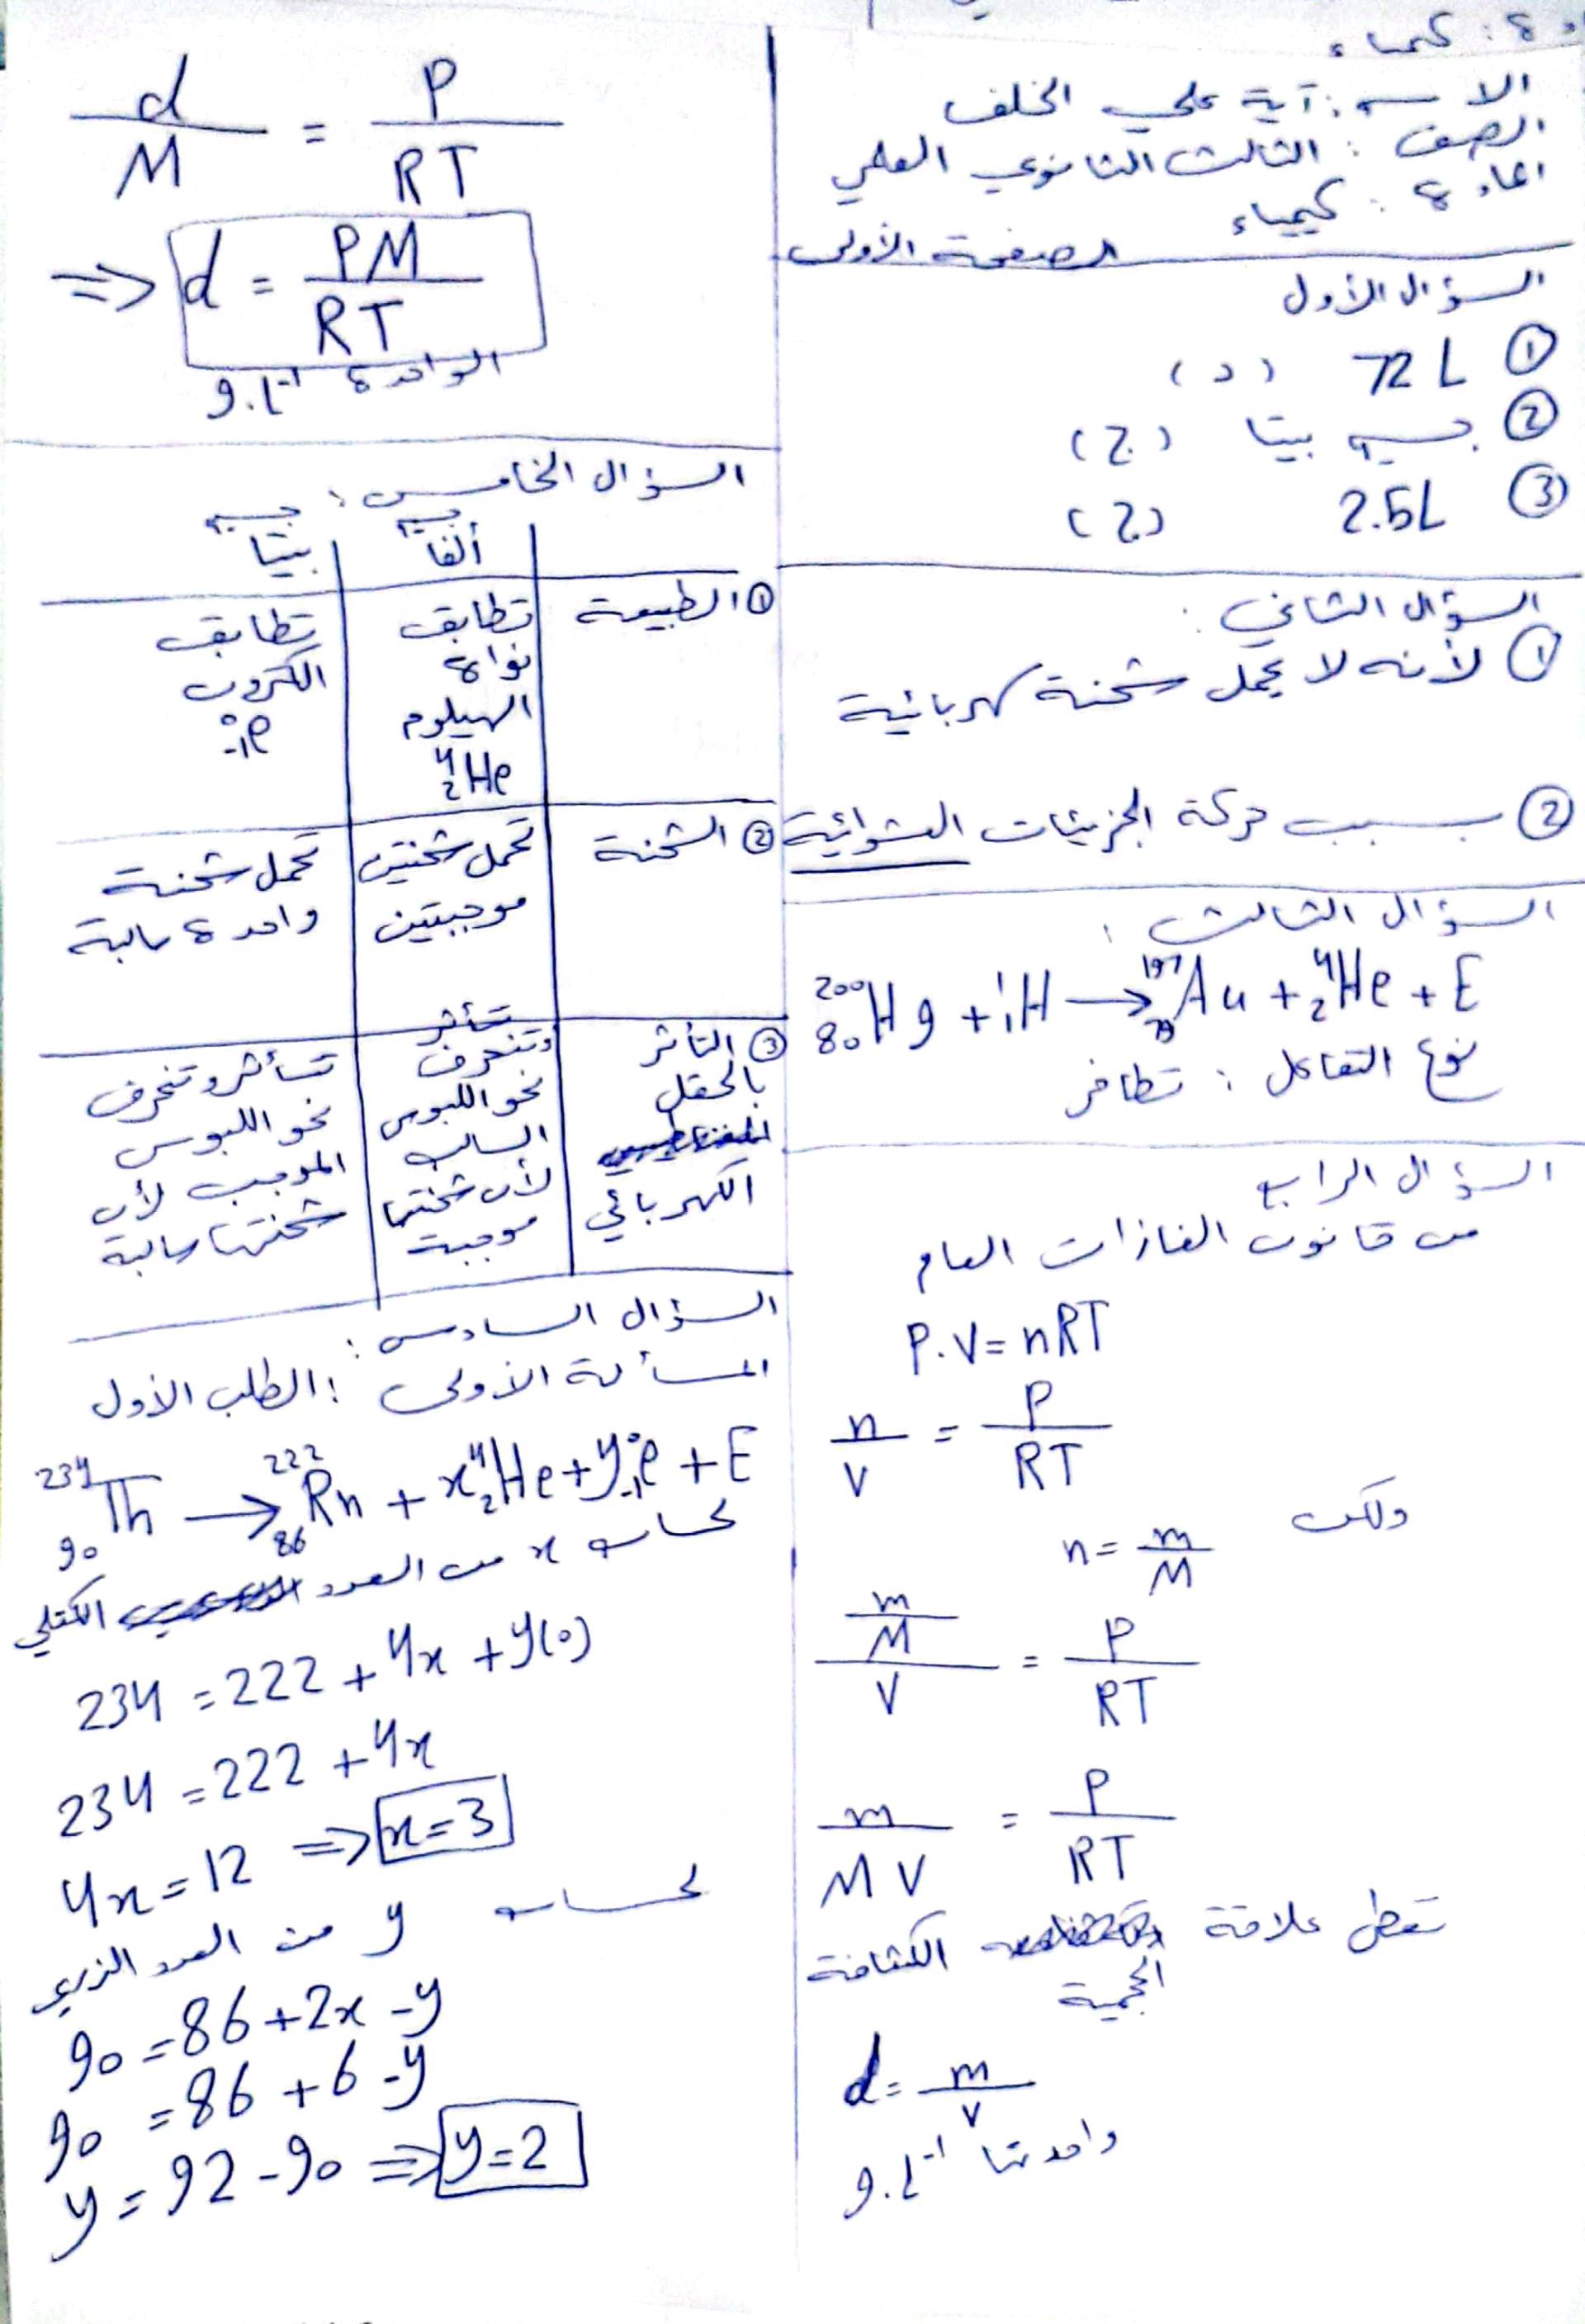 كيمياء
الاسم: آية علي الخلف
الصف: الثالث الثانوي العلمي
المادة: كيمياء
الصفحة الأولى
السؤال الأول
① 72 L (د)
② جسيم بيتا (ج)
③ 2.5L (ج)
السؤال الثاني:
① لأنه لا يحمل شحنة كهربائية
② بسبب حركة الجزيئات العشوائية
السؤال الثالث:
²⁰⁰₈₀Hg + ¹₁H → ¹⁹⁷₇₉Au + ⁴₂He + E
نوع التفاعل: تطافر
السؤال الرابع
من قانون الغازات العام
P.V = nRT
n/V = P/RT
ولكن
n = m/M
(m/M)/V = P/RT
m/MV = P/RT
تعطى علاقة الكثافة
الحجمية
d = m/V
واحدتها g.L⁻¹
d/M = P/RT
⇒ d = PM/RT
الواحدة g.L⁻¹
السؤال الخامس:
جسيم ألفا
جسيم بيتا
① الطبيعة
تطابق
نواة
الهيليوم
⁴₂He
تطابق
الكترون
⁰₋₁e
② الشحنة
تحمل شحنتين
موجبتين
تحمل شحنة
واحدة سالبة
③ التأثر
بالحقل
الكهربائي
تتأثر
وتنحرف
نحو اللبوس
السالب
لأن شحنتها
موجبة
تتأثر وتنحرف
نحو اللبوس
الموجب لأن
شحنتها سالبة
السؤال السادس:
المسألة الأولى: الطلب الأول
²³⁴₉₀Th → ²²²₈₆Rn + x⁴₂He + y⁰₋₁e + E
لحساب x من العدد الكتلي
234 = 222 + 4x + y(0)
234 = 222 + 4x
4x = 12 ⇒ x = 3
لحساب y من العدد الذري
90 = 86 + 2x - y
90 = 86 + 6 - y
y = 92 - 90 ⇒ y = 2